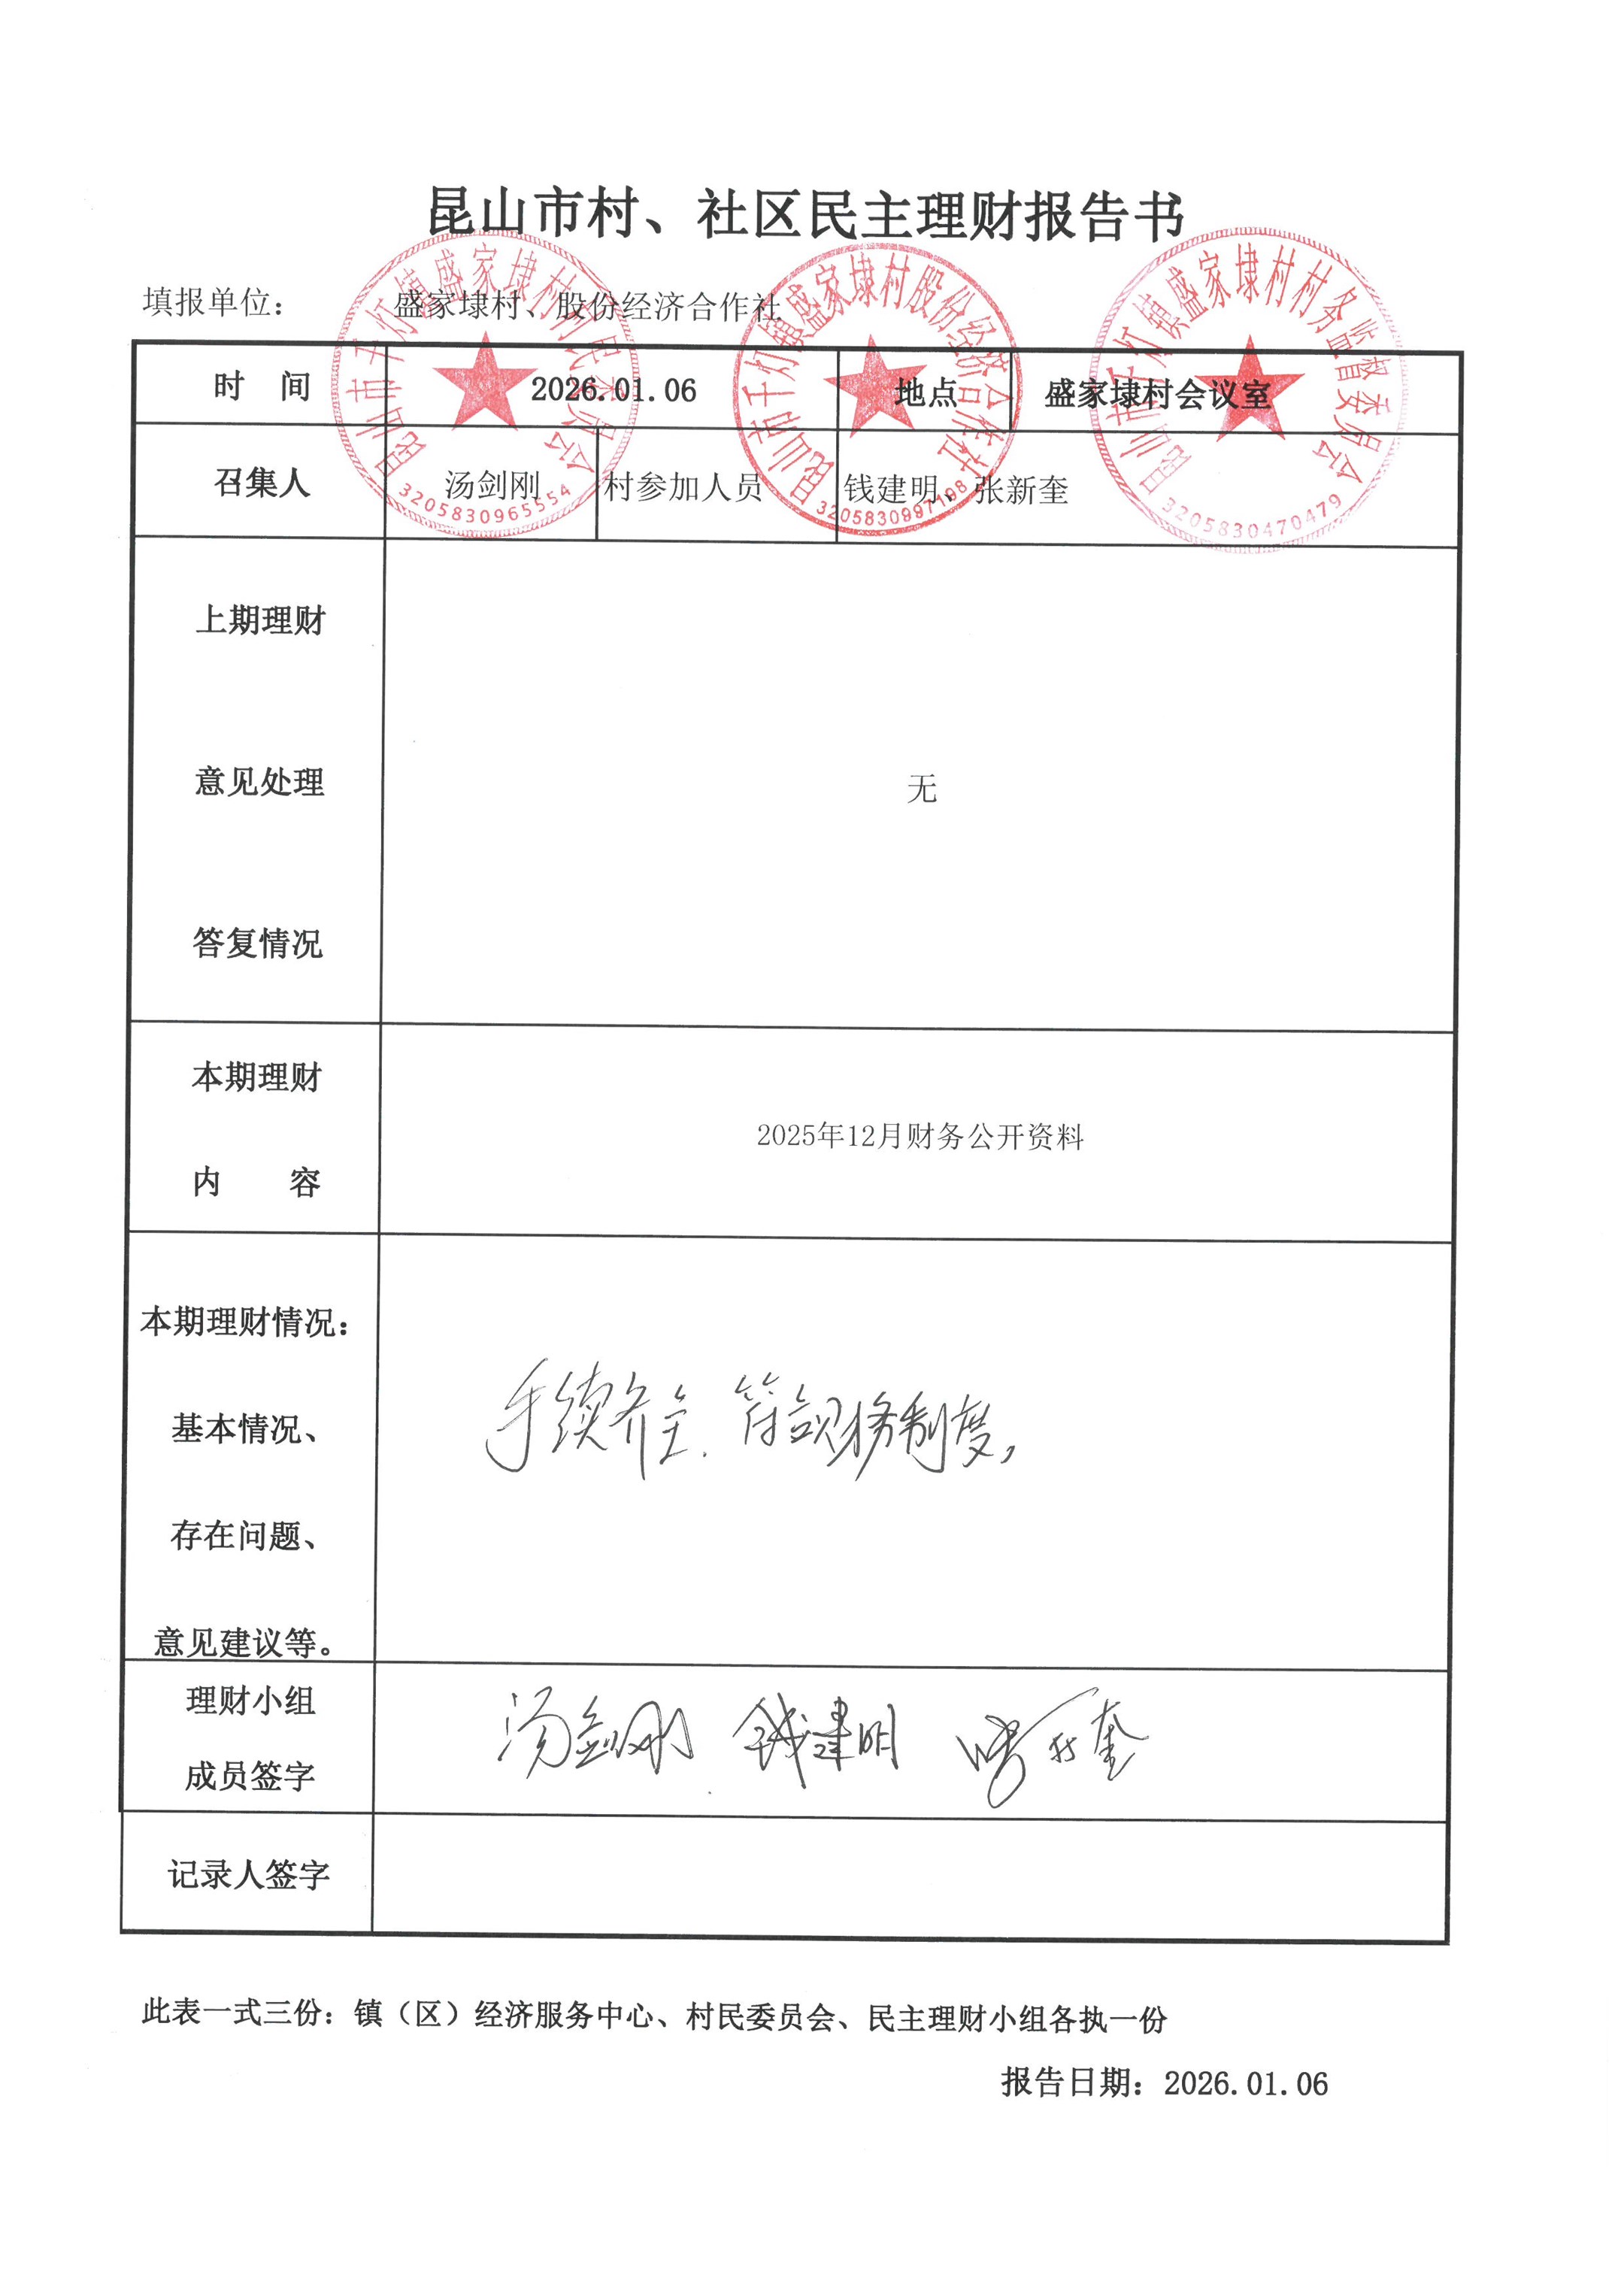 昆山市村、社区民主理财报告书
填报单位： 盛家埭村、股份经济合作社
昆山市千灯镇盛家埭村村民委员会
3205830965554
昆山市千灯镇盛家埭村股份经济合作社
3205830997198
昆山市千灯镇盛家埭村村务监督委员会
3205830470479
时 间 2026.01.06 地点 盛家埭村会议室
召集人 汤剑刚 村参加人员 钱建明、张新奎
上期理财
意见处理
答复情况
无
本期理财
内 容
2025年12月财务公开资料
本期理财情况：
基本情况、
存在问题、
意见建议等。
手续齐全．符合财务制度，
理财小组
成员签字
汤剑刚 钱建明 张新奎
记录人签字
此表一式三份：镇（区）经济服务中心、村民委员会、民主理财小组各执一份
报告日期：2026.01.06